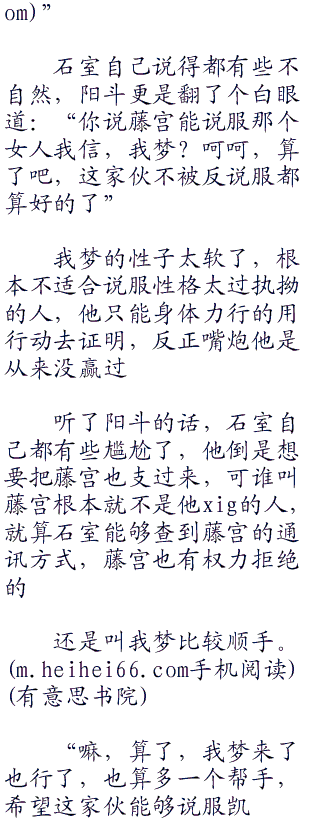 om)”
石室自己说得都有些不
自然，阳斗更是翻了个白眼
道：“你说藤宫能说服那个
女人我信，我梦？呵呵，算
了吧，这家伙不被反说服都
算好的了”
我梦的性子太软了，根
本不适合说服性格太过执拗
的人，他只能身体力行的用
行动去证明，反正嘴炮他是
从来没赢过
听了阳斗的话，石室自
己都有些尴尬了，他倒是想
要把藤宫也支过来，可谁叫
藤宫根本就不是他xig的人，
就算石室能够查到藤宫的通
讯方式，藤宫也有权力拒绝
的
还是叫我梦比较顺手。
(m.heihei66.com手机阅读)
(有意思书院)
“嘛，算了，我梦来了
也行了，也算多一个帮手，
希望这家伙能够说服凯